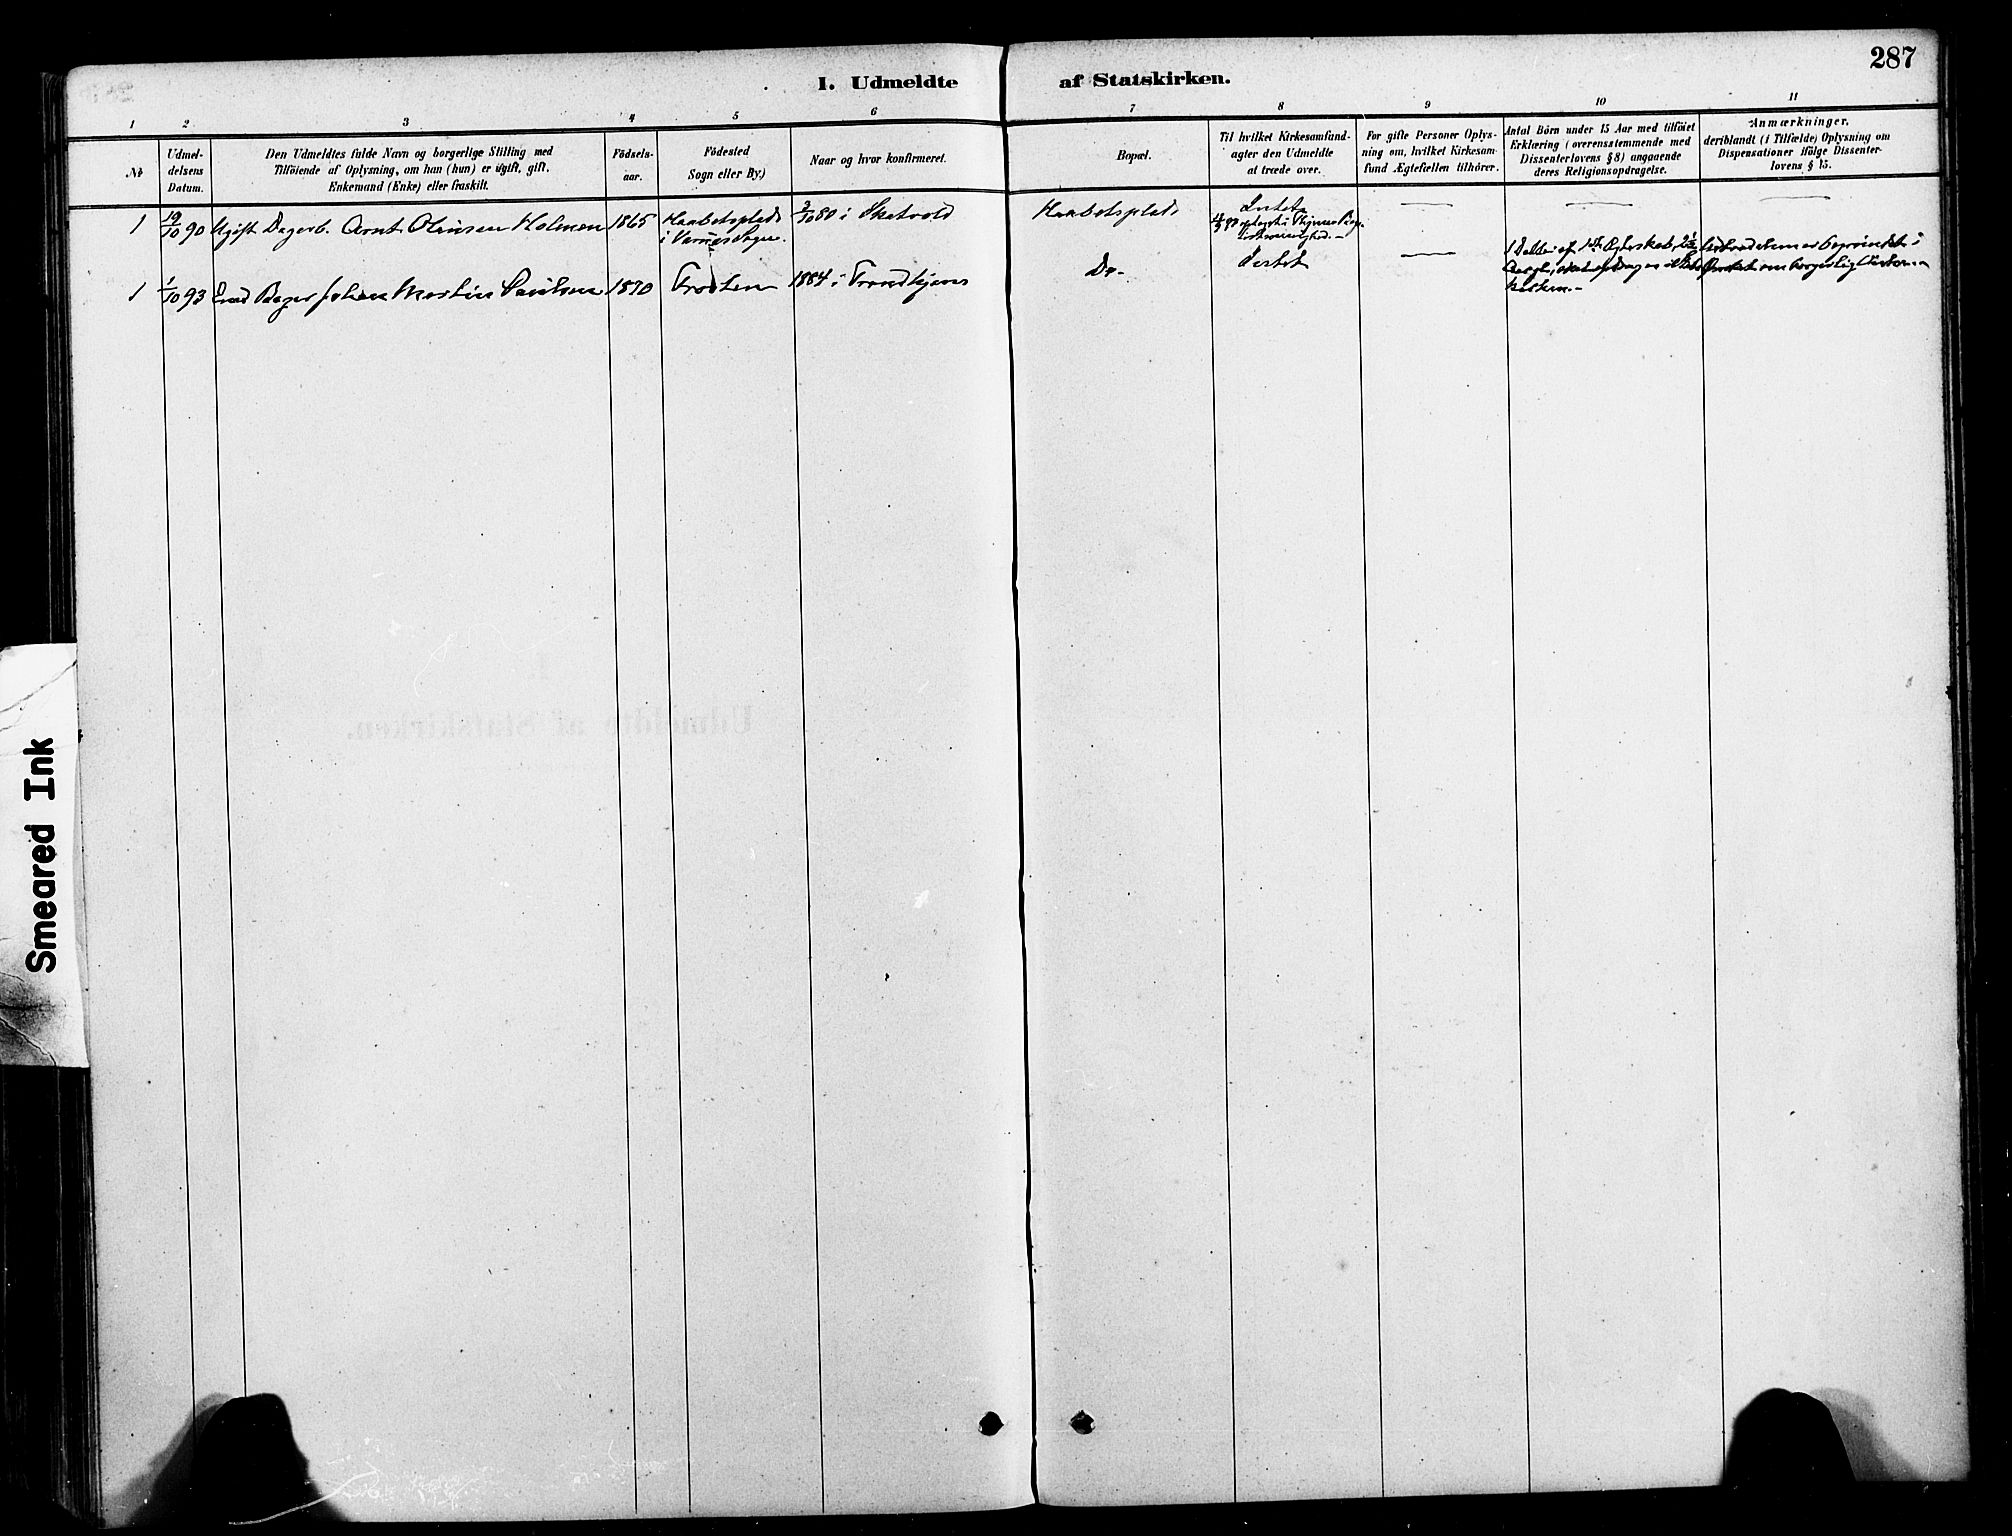 287
I. Udmeldte af Statskirken.
1 2 3 4 5 6 7 8 9 10 11
No
Udmel-
delsens
Datum.
Den Udmeldtes fulde Navn og borgerlige Stilling med
Tilföiende af Oplysning, om han (hun) er ugift, gift,
Enkemand (Enke) eller fraskilt.
Födsels-
aar.
Födested
Sogn eller By.)
Naar og hvor konfirmeret.
Bopæl.
Til hvilket Kirkesamfund-
agter den Udmeldte
at træde over.
For gifte Personer Oplys-
ning om, hvilket Kirkesam-
fund Ægtefællen tilhörer.
Antal Börn under 15 Aar med tilföiet
Erklæring (overensstemmende med
Dissenterlovens § 8) angaaende
deres Religionsopdragelse.
Anmærkninger,
deriblandt (i Tilfælde) Oplysning om
Dispensationer ifölge Dissenter-
lovens § 15.
1 19/10 90 Ugift Dagarb. Arnt Olinsen Holmen 1865 Haabetsplads
i Værnes Sogn.
3/10 80 i Skatvold
Haabetsplads
Intet
1 1/10 93 Johan Martin 1870 Frosten 1884 i Trondhjem
Do-
Intet
1 Datter af 1ste Ægteskab
kirken.-
Udtrædelsen er begrundet i
Ønsket om borgerlig
Smeared Ink